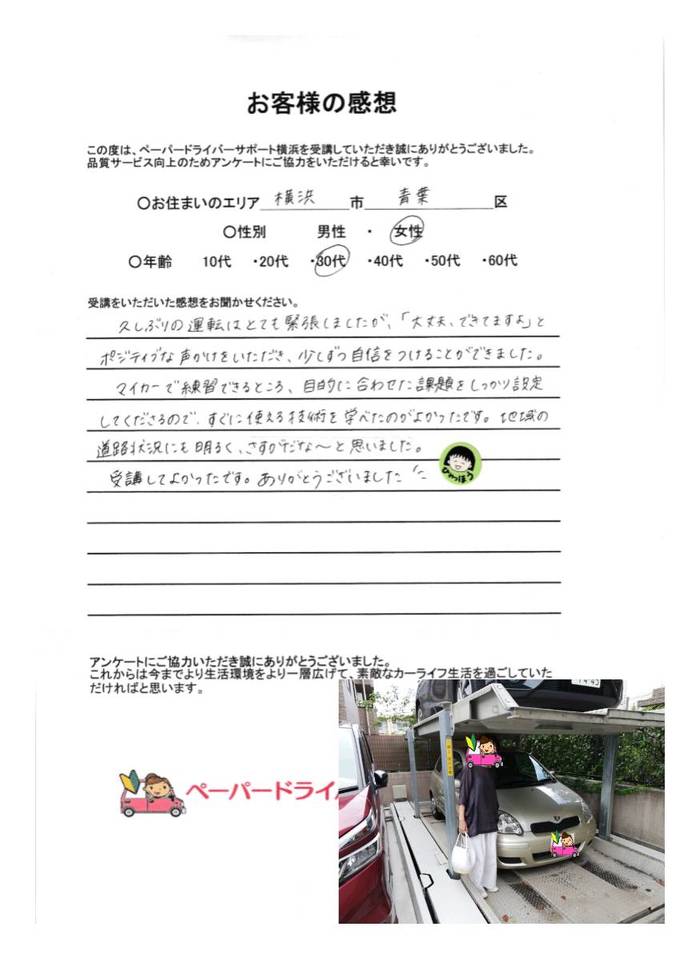 お客様の感想
この度は、ペーパードライバーサポート横浜を受講していただき誠にありがとうございました。
品質サービス向上のためアンケートにご協力をいただけると幸いです。
〇お住まいのエリア 横浜 市 青葉 区
〇性別 男性 ・ 女性
〇年齢 10代 ・20代 ・30代 ・40代 ・50代 ・60代
受講をいただいた感想をお聞かせください。
久しぶりの運転はとても緊張しましたが、「大丈夫、できてますよ」と
ポジティブな声かけをいただき、少しずつ自信をつけることができました。
マイカーで練習できるところ、目的に合わせた課題をしっかり設定
してくださるので、すぐに使える技術を学べたのがよかったです。地域の
道路状況にも明るく、さすがだな〜と思いました。
受講してよかったです。ありがとうございました
アンケートにご協力いただき誠にありがとうございました。
これからは今までより生活環境をより一層広げて、素敵なカーライフ生活を過ごしていた
だければと思います。
ペーパードライ